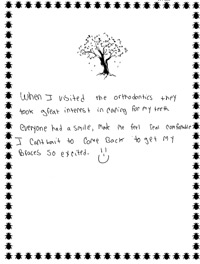 When I visited the orthodontics they
took great interest in caring for my teeth
Everyone had a smile, make me feel comfortable
I Can't wait to Come Back to get My
Braces So excited.